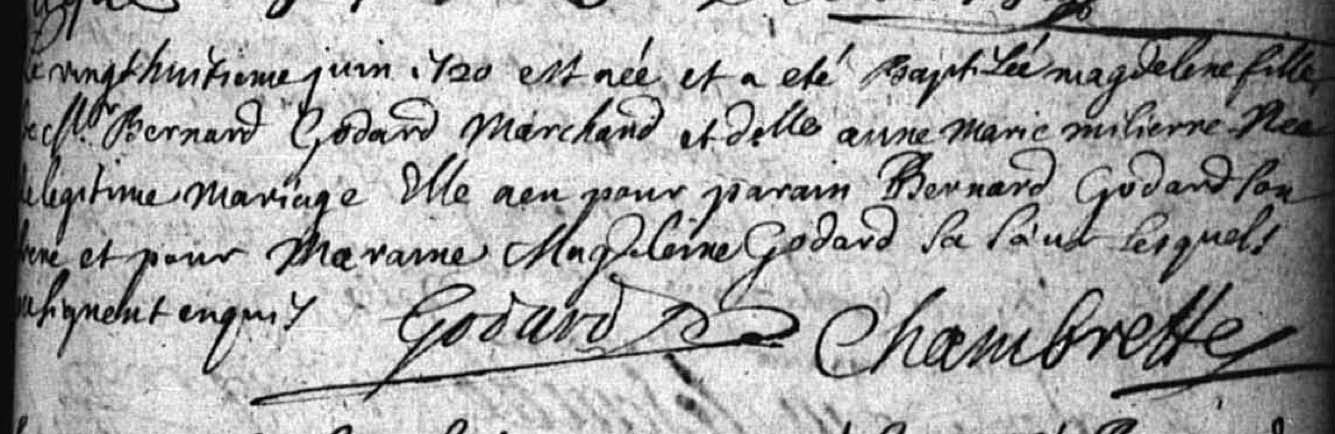 Le vingt huitieme juin 1720 est née et a eté Baptisée magdelene fille
de Sr Bernard Godard Marchand et delle anne marie milierre Née
de legitime Mariage Elle a eu pour parain Bernard Godard son
frere et pour Maraine Magdeleine Godard sa sœur lesquels
ne signent enquis Godard Chambrette